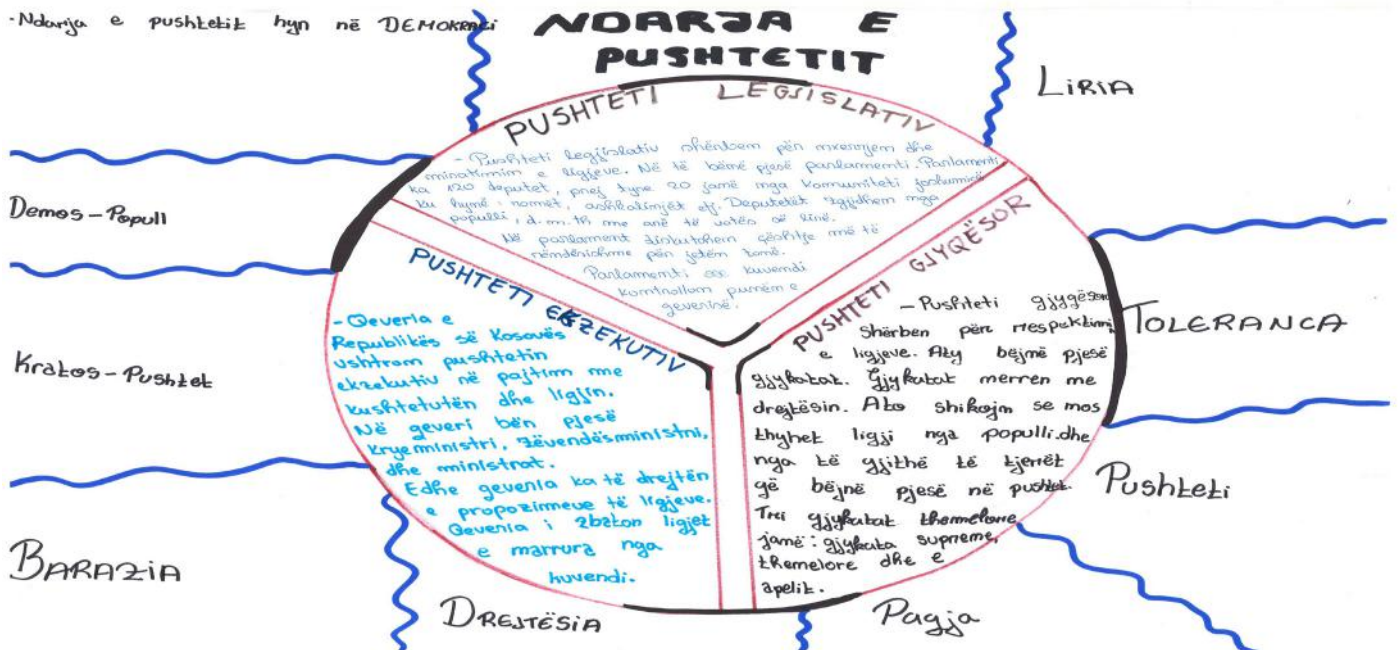 -Ndarja e pushtetit hyn në DEMOKRACI
NDARJA E
PUSHTETIT
LIRIA
PUSHTETI LEGJISLATIV
- Pushteti legjislativ shërben për nxerrjen dhe
miratimin e ligjeve. Në të bëmë pjesë parlamenti. Parlamenti
ka 120 deputet, prej tyre 20 janë nga komuniteti joshumicë
ku hymë: romët, ashkalinjët etj. Deputetët zgjidhen nga
populli, d.m.th me anë të votës së lirë.
Në parlament diskutohen çështje më të
rëndësishme për jetën tonë.
Parlamenti ose kuvendi
kontrollon punën e
qeverisë.
Demos-Popull
Kratos-Pushtet
BARAZIA
PUSHTETI EKZEKUTIV
-Qeveria e
Republikës së Kosovës
ushtron pushtetin
ekzekutiv në pajtim me
kushtetutën dhe ligjin.
Në qeveri bën pjesë
kryeministri, zëvendësministri,
dhe ministrat.
Edhe qeveria ka të drejtën
e propozimeve të ligjeve.
Qeveria i zbaton ligjet
e marrura nga
kuvendi.
PUSHTETI GJYQËSOR
-Pushteti gjyqësor
Shërben për respektimin
e ligjeve. Aty bëjmë pjesë
gjykatat. Gjykatat merren me
drejtësin. Ato shikojn se mos
thyhet ligji nga populli.dhe
nga të gjithë të tjerët
që bëjnë pjesë në pushtet.
Tri gjykatat themelore
janë: gjykata supreme,
themelore dhe e
apelit.
TOLERANCA
Pushteti
DREJTËSIA
Paqja